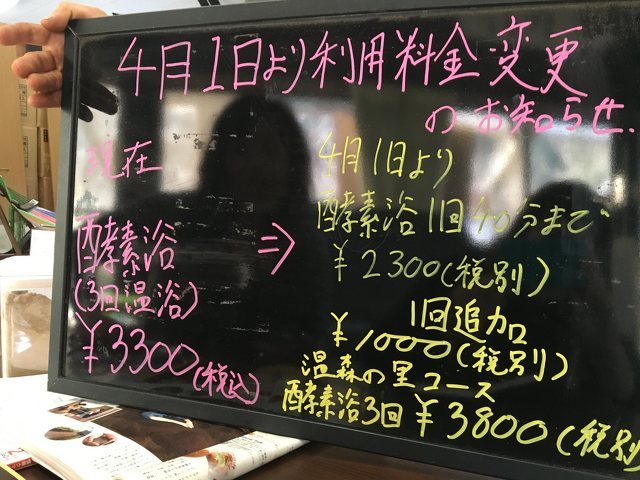 4月1日より利用料金変更
のお知らせ.
現在
酵素浴
(3回温浴)
¥3300(税込)
⇒
4月1日より
酵素浴1回40分まで
¥2300(税別)
1回追加
¥1000(税別)
温森の里コース
酵素浴3回¥3800(税別